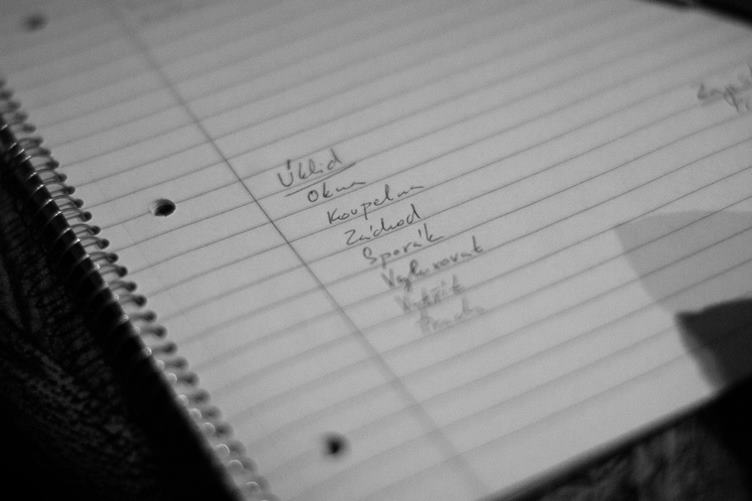 Úklid
Okna
Koupelna
Záchod
Sporák
Vyluxovat
Vytřít